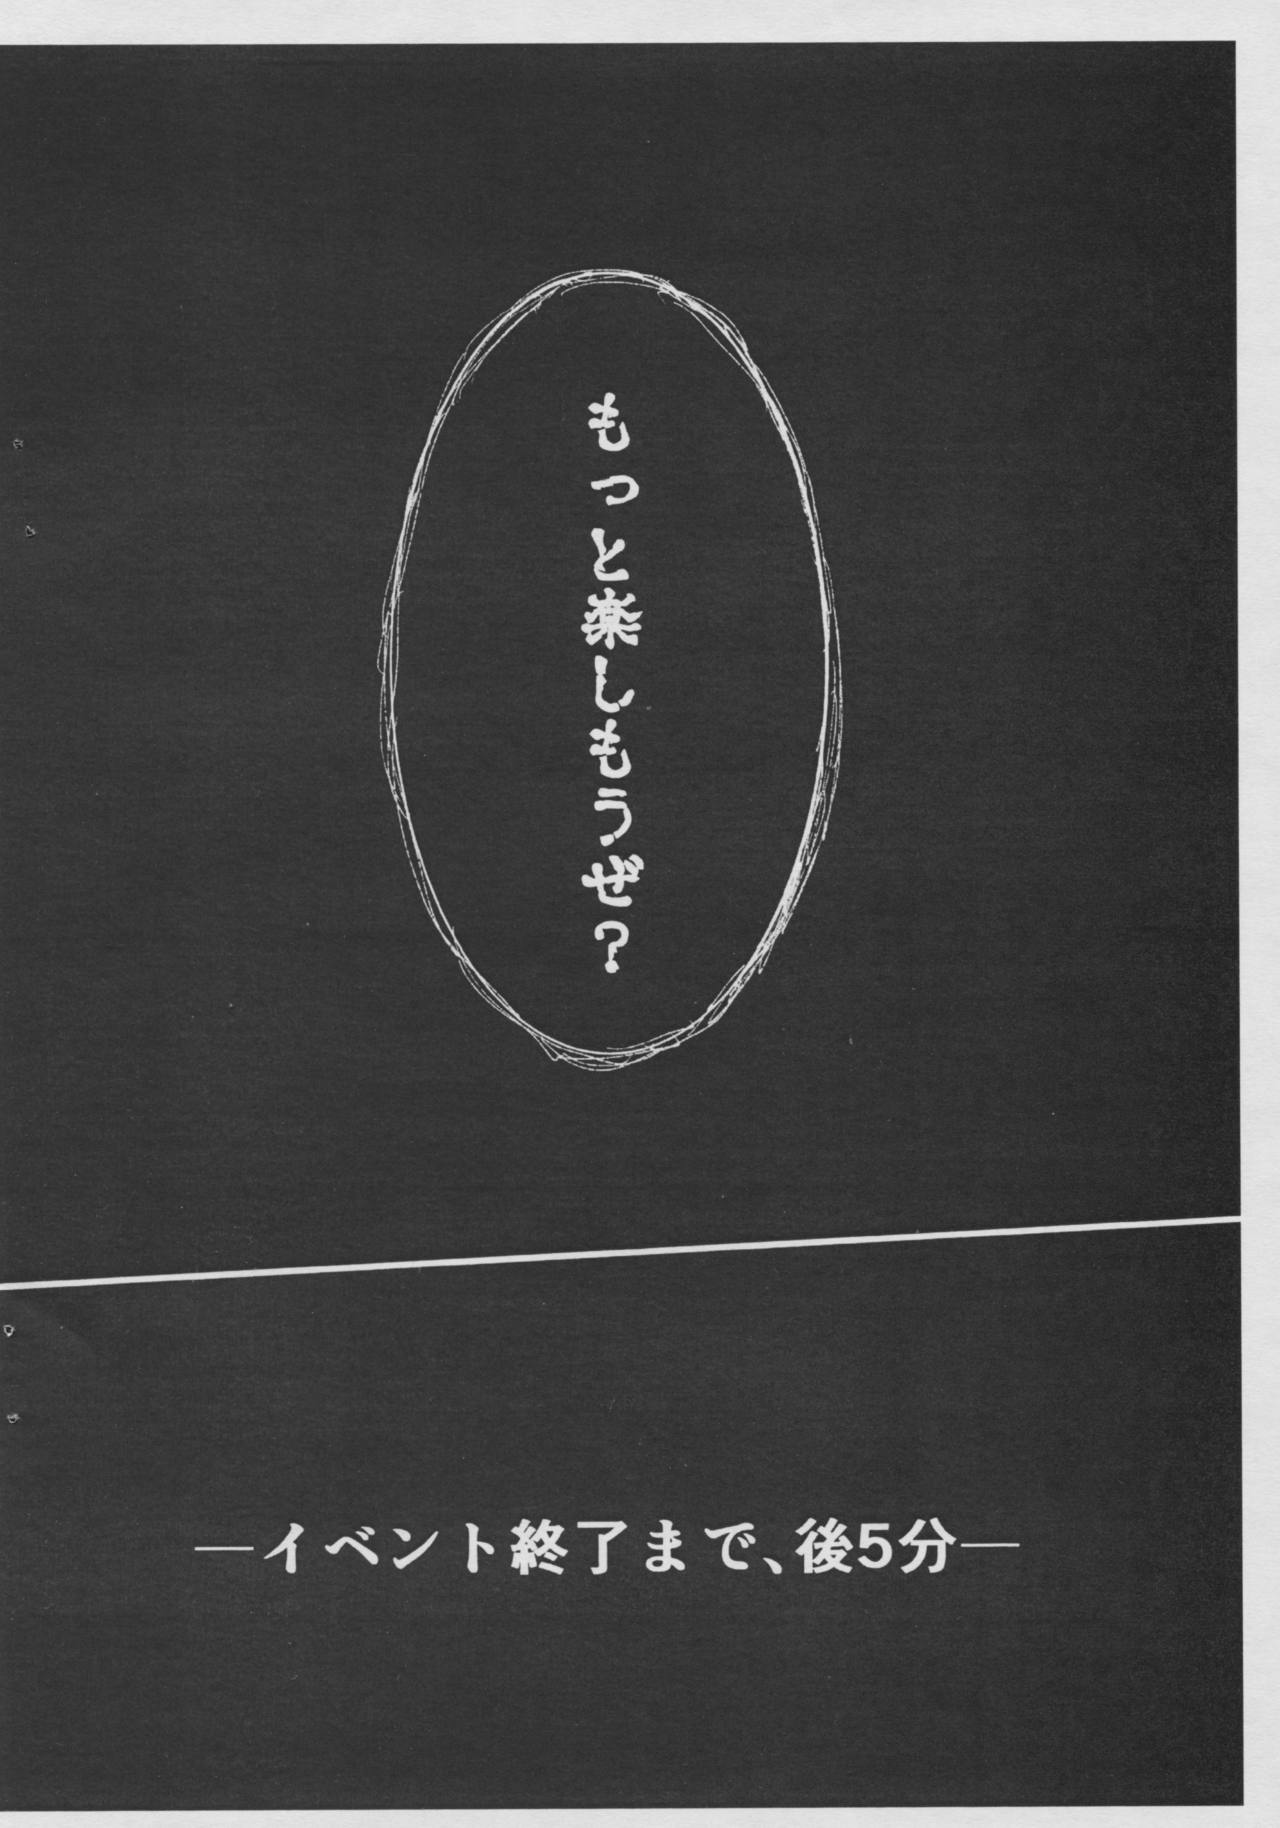 もっと楽しもうぜ？
―イベント終了まで、後5分―